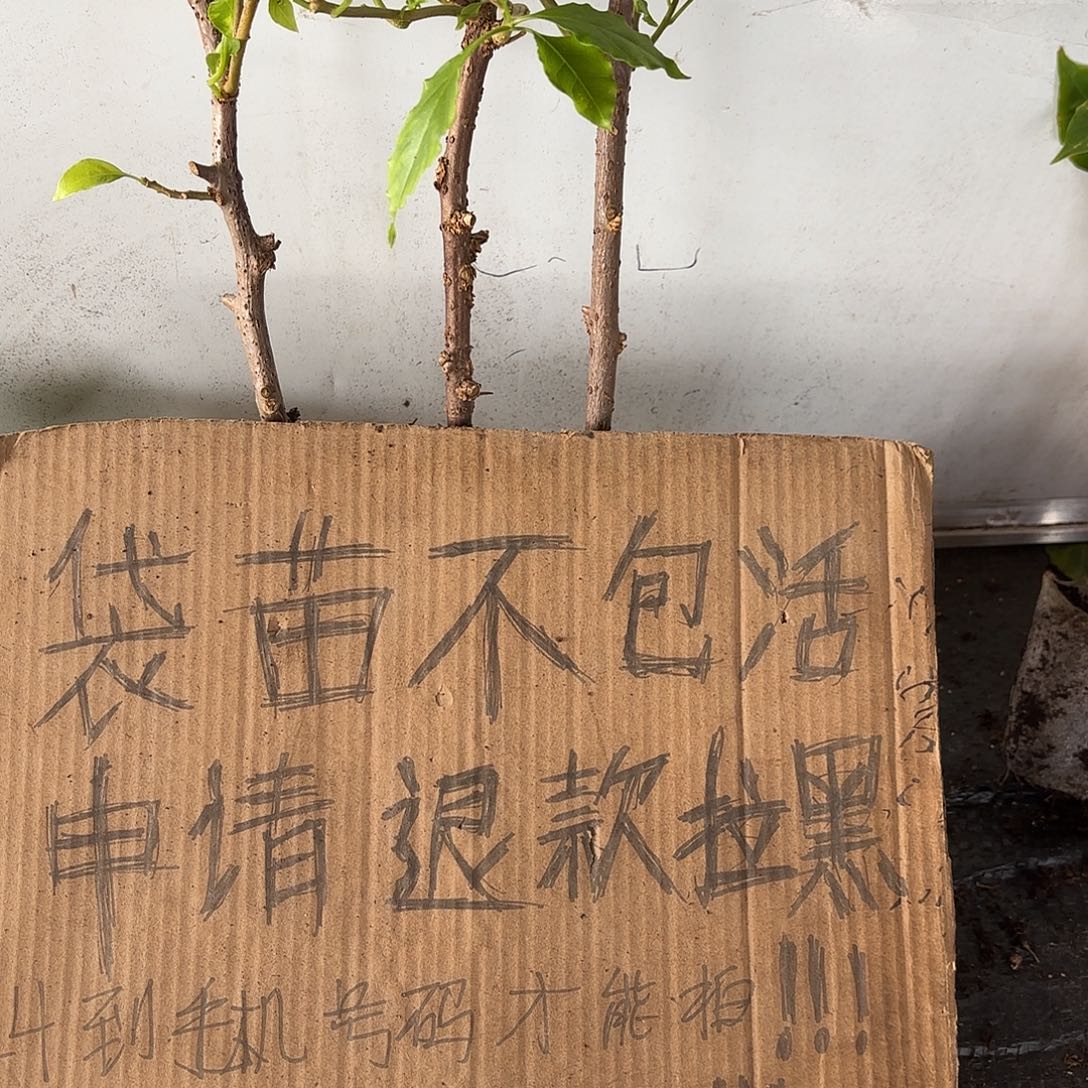 袋苗不包活
申请退款拉黑
叫到手机号码才能拍!!!